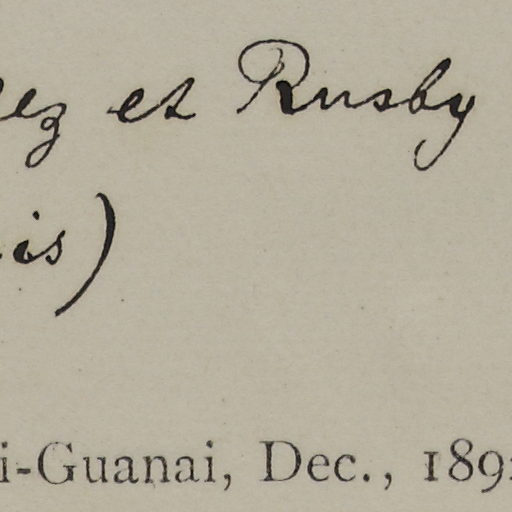 ez et Rusby
is)
i-Guanai, Dec., 189